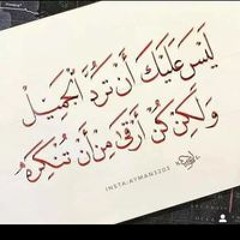 لَيْسَ عَلَيْكَ أَنْ تَرُدَّ الْجَمِيْلْ
وَلَكِنْ كُنْ أَرْقَىٰ مِنْ أَنْ تُنْكِرَهُ
INSTA:AYMAN3203